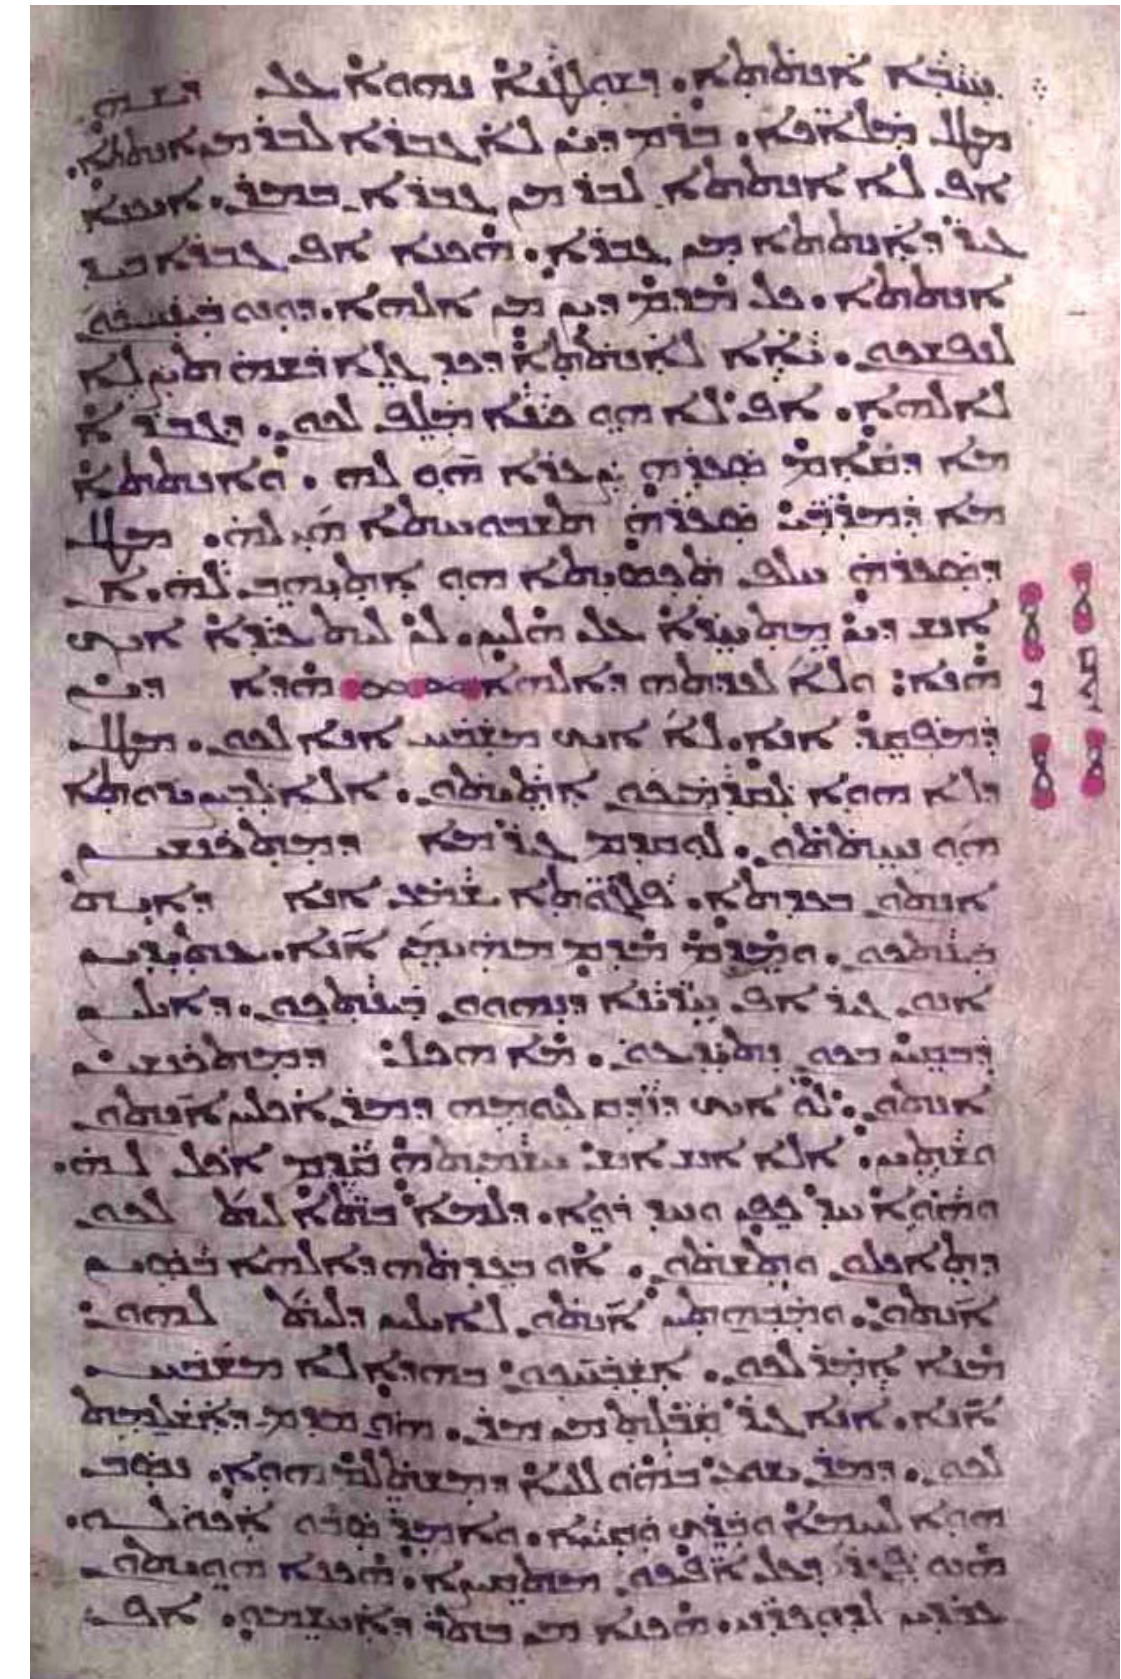 ܚܝܒܐ ܐܢܬܬܐ. ܕܫܘܠܛܢܐ ܢܗܘܐ ܥܠ ܪܫܗ
ܡܛܠ ܡܠܐܟܐ. ܒܪܡ ܕܝܢ ܠܐ ܓܒܪܐ ܠܒܪ ܡܢ ܐܢܬܬܐ.
ܐܦ ܠܐ ܐܢܬܬܐ ܠܒܪ ܡܢ ܓܒܪܐ ܒܡܪܢ. ܐܝܟܢܐ
ܓܝܪ ܕܐܢܬܬܐ ܡܢ ܓܒܪܐ. ܗܟܢܐ ܐܦ ܓܒܪܐ ܒܝܕ
ܐܢܬܬܐ. ܟܠ ܡܕܡ ܕܝܢ ܡܢ ܐܠܗܐ. ܕܘܢܘ ܒܝܢܝܟܘܢ
ܠܢܦܫܟܘܢ. ܝܐܐ ܠܐܢܬܬܐ ܕܟܕ ܓܠܐ ܪܫܗ ܬܨܠܐ
ܠܐܠܗܐ. ܐܦ ܠܐ ܗܘ ܟܝܢܐ ܡܠܦ ܠܟܘܢ. ܕܓܒܪܐ
ܡܐ ܕܩܐܡ ܣܥܪܗ ܨܥܪܐ ܗܘ ܠܗ. ܘܐܢܬܬܐ
ܡܐ ܕܡܪܒܝ ܣܥܪܗ ܬܫܒܘܚܬܐ ܗܝ ܠܗ. ܡܛܠ
ܕܣܥܪܗ ܚܠܦ ܬܟܣܝܬܐ ܗܘ ܐܬܝܗܒ ܠܗ. ܐܢ
ܐܢܫ ܕܝܢ ܡܬܚܪܐ ܥܠ ܗܠܝܢ. ܠܢ ܠܝܬ ܥܝܕܐ ܐܝܟ
ܗܢܐ: ܘܠܐ ܠܥܕܬܗ ܕܐܠܗܐ ܗܕܐ ܕܝܢ
ܕܡܦܩܕ ܐܢܐ. ܠܐ ܐܝܟ ܡܫܒܚ ܐܢܐ ܠܟܘܢ. ܡܛܠ
ܕܠܐ ܗܘܐ ܠܩܕܡܝܟܘܢ ܐܬܝܬܘܢ. ܐܠܐ ܠܒܨܝܪܘܬܐ
ܗܘ ܢܚܬܬܘܢ. ܠܘܩܕܡ ܓܝܪ ܡܐ ܕܡܬܟܢܫܝܢ
ܐܢܬܘܢ ܒܥܕܬܐ. ܦܠܓܘܬܐ ܫܡܥ ܐܢܐ ܕܐܝܬ
ܒܝܢܬܟܘܢ. ܘܡܕܡ ܡܕܡ ܡܗܝܡܢ ܐܢܐ. ܥܬܝܕܝܢ
ܐܢܘܢ ܓܝܪ ܐܦ ܚܪܝܢܐ ܕܢܗܘܘܢ ܒܝܢܬܟܘܢ. ܕܐܝܠܝܢ
ܕܒܩܝܢ ܒܟܘܢ ܢܬܝܕܥܘܢ. ܡܐ ܗܟܝܠ ܕܡܬܟܢܫܝܢ
ܐܢܬܘܢ. ܠܘ ܐܝܟ ܕܙܕܩ ܠܝܘܡܗ ܕܡܪܢ ܐܟܠܝܢ ܐܢܬܘܢ
ܘܫܬܝܢ. ܐܠܐ ܐܢܫ ܐܢܫ ܚܫܡܝܬܗ ܩܕܡ ܐܟܠ ܠܗ.
ܘܗܘܐ ܚܕ ܟܦܢ ܘܚܕ ܪܘܐ. ܕܠܡܐ ܒܬܐ ܠܝܬ ܠܟܘܢ
ܕܬܐܟܠܘܢ ܘܬܫܬܘܢ. ܐܘ ܒܥܕܬܗ ܕܐܠܗܐ ܒܣܝܢ
ܐܢܬܘܢ: ܘܡܒܗܬܝܢ ܐܢܬܘܢ ܠܐܝܠܝܢ ܕܠܝܬ ܠܗܘܢ:
ܡܢܐ ܐܡܪ ܠܟܘܢ. ܐܫܒܚܟܘܢ: ܒܗܕܐ ܠܐ ܡܫܒܚ
ܐܢܐ. ܐܢܐ ܓܝܪ ܩܒܠܬ ܡܢ ܡܪܢ. ܗܘ ܡܕܡ ܕܐܫܠܡܬ
ܠܟܘܢ. ܕܡܪܢ ܝܫܘܥ ܒܗܘ ܠܠܝܐ ܕܡܫܬܠܡ ܗܘܐ. ܢܣܒ
ܗܘܐ ܠܚܡܐ ܘܒܪܟ ܘܩܨܐ. ܘܐܡܪ ܣܒܘ ܐܟܘܠܘ.
ܗܢܘ ܦܓܪܝ ܕܥܠ ܐܦܝܟܘܢ ܡܬܩܨܐ. ܗܟܢܐ ܗܘܝܬܘܢ
ܥܒܕܝܢ ܠܕܘܟܪܢܝ. ܗܟܢܐ ܡܢ ܒܬܪ ܕܐܚܫܡܘ. ܐܦ